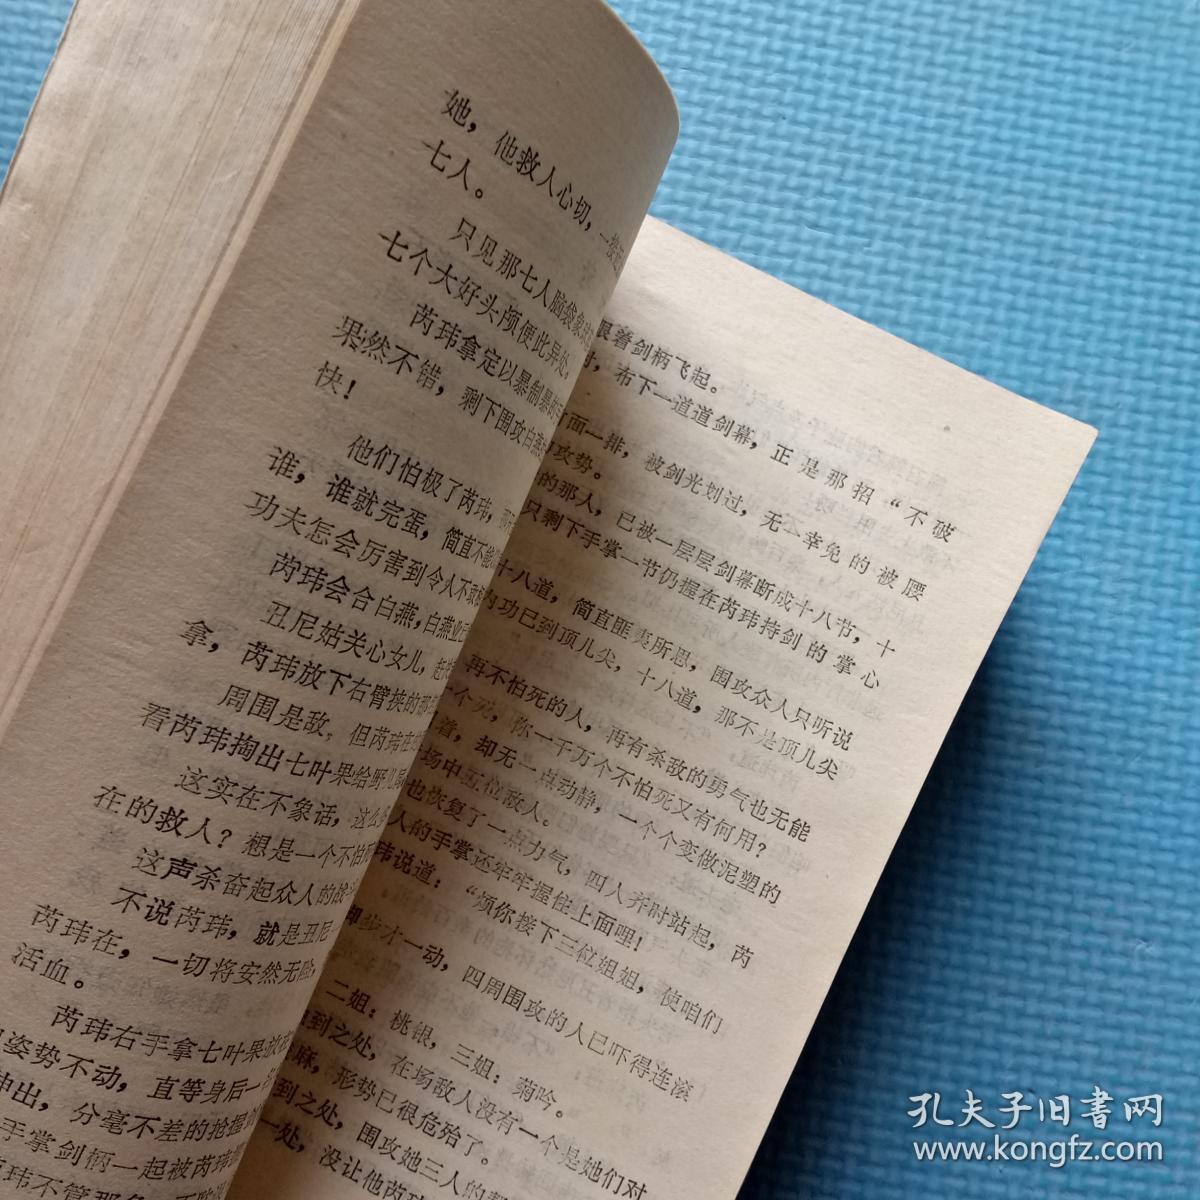 她，他救人心切，一
七人。
只见那七人脑袋象
七个大好头颅便此异处，
芮玮拿定以暴制暴的
果然不错，剩下围攻白燕
快！
他们怕极了芮玮，
谁，谁就完蛋，简直不能
功夫怎会厉害到令人不敢
芮玮会合白燕，白燕业已
丑尼姑关心女儿，
拿，芮玮放下右臂挟的那
周围是敌，但芮玮在
看芮玮掏出七叶果给野儿
这实在不象话，这么多
在的救人？想是一个不怕
这声杀奋起众人的战
不说芮玮，就是丑尼
芮玮在，一切将安然无险，
活血。
芮玮右手拿七叶果放在
姿势不动，直等身后一
伸出，分毫不差的抢握
手掌剑柄一起被芮玮
玮不管那
跟着剑柄飞起。
时，布下一道道剑幕，正是那招“不破
前面一排，被剑光划过，无一幸免的被腰
攻势。
的那人，已被一层层剑幕断成十八节，十
只剩下手掌一节仍握在芮玮持剑的掌心
十八道，简直匪夷所思，围攻众人只听说
内功已到顶儿尖，十八道，那不是顶儿尖
再不怕死的人，再有杀敌的勇气也无能
一个死，你一千万个不怕死又有何用？
着，却无一点动静，一个个变做泥塑的
场中五位敌人。
也恢复了一点力气，四人齐时站起，芮
人的手掌还牢牢握住上面哩！
玮说道：“烦你接下三位姐姐，使咱们
脚步才一动，四周围攻的人已吓得连滚
二姐：桃银，三姐：菊吟。
到之处，在场敌人没有一个是她们对
麻，形势已很危殆了。
到之处，围攻她三人的
一处，没让他芮玮
孔夫子旧书网
www.kongfz.com